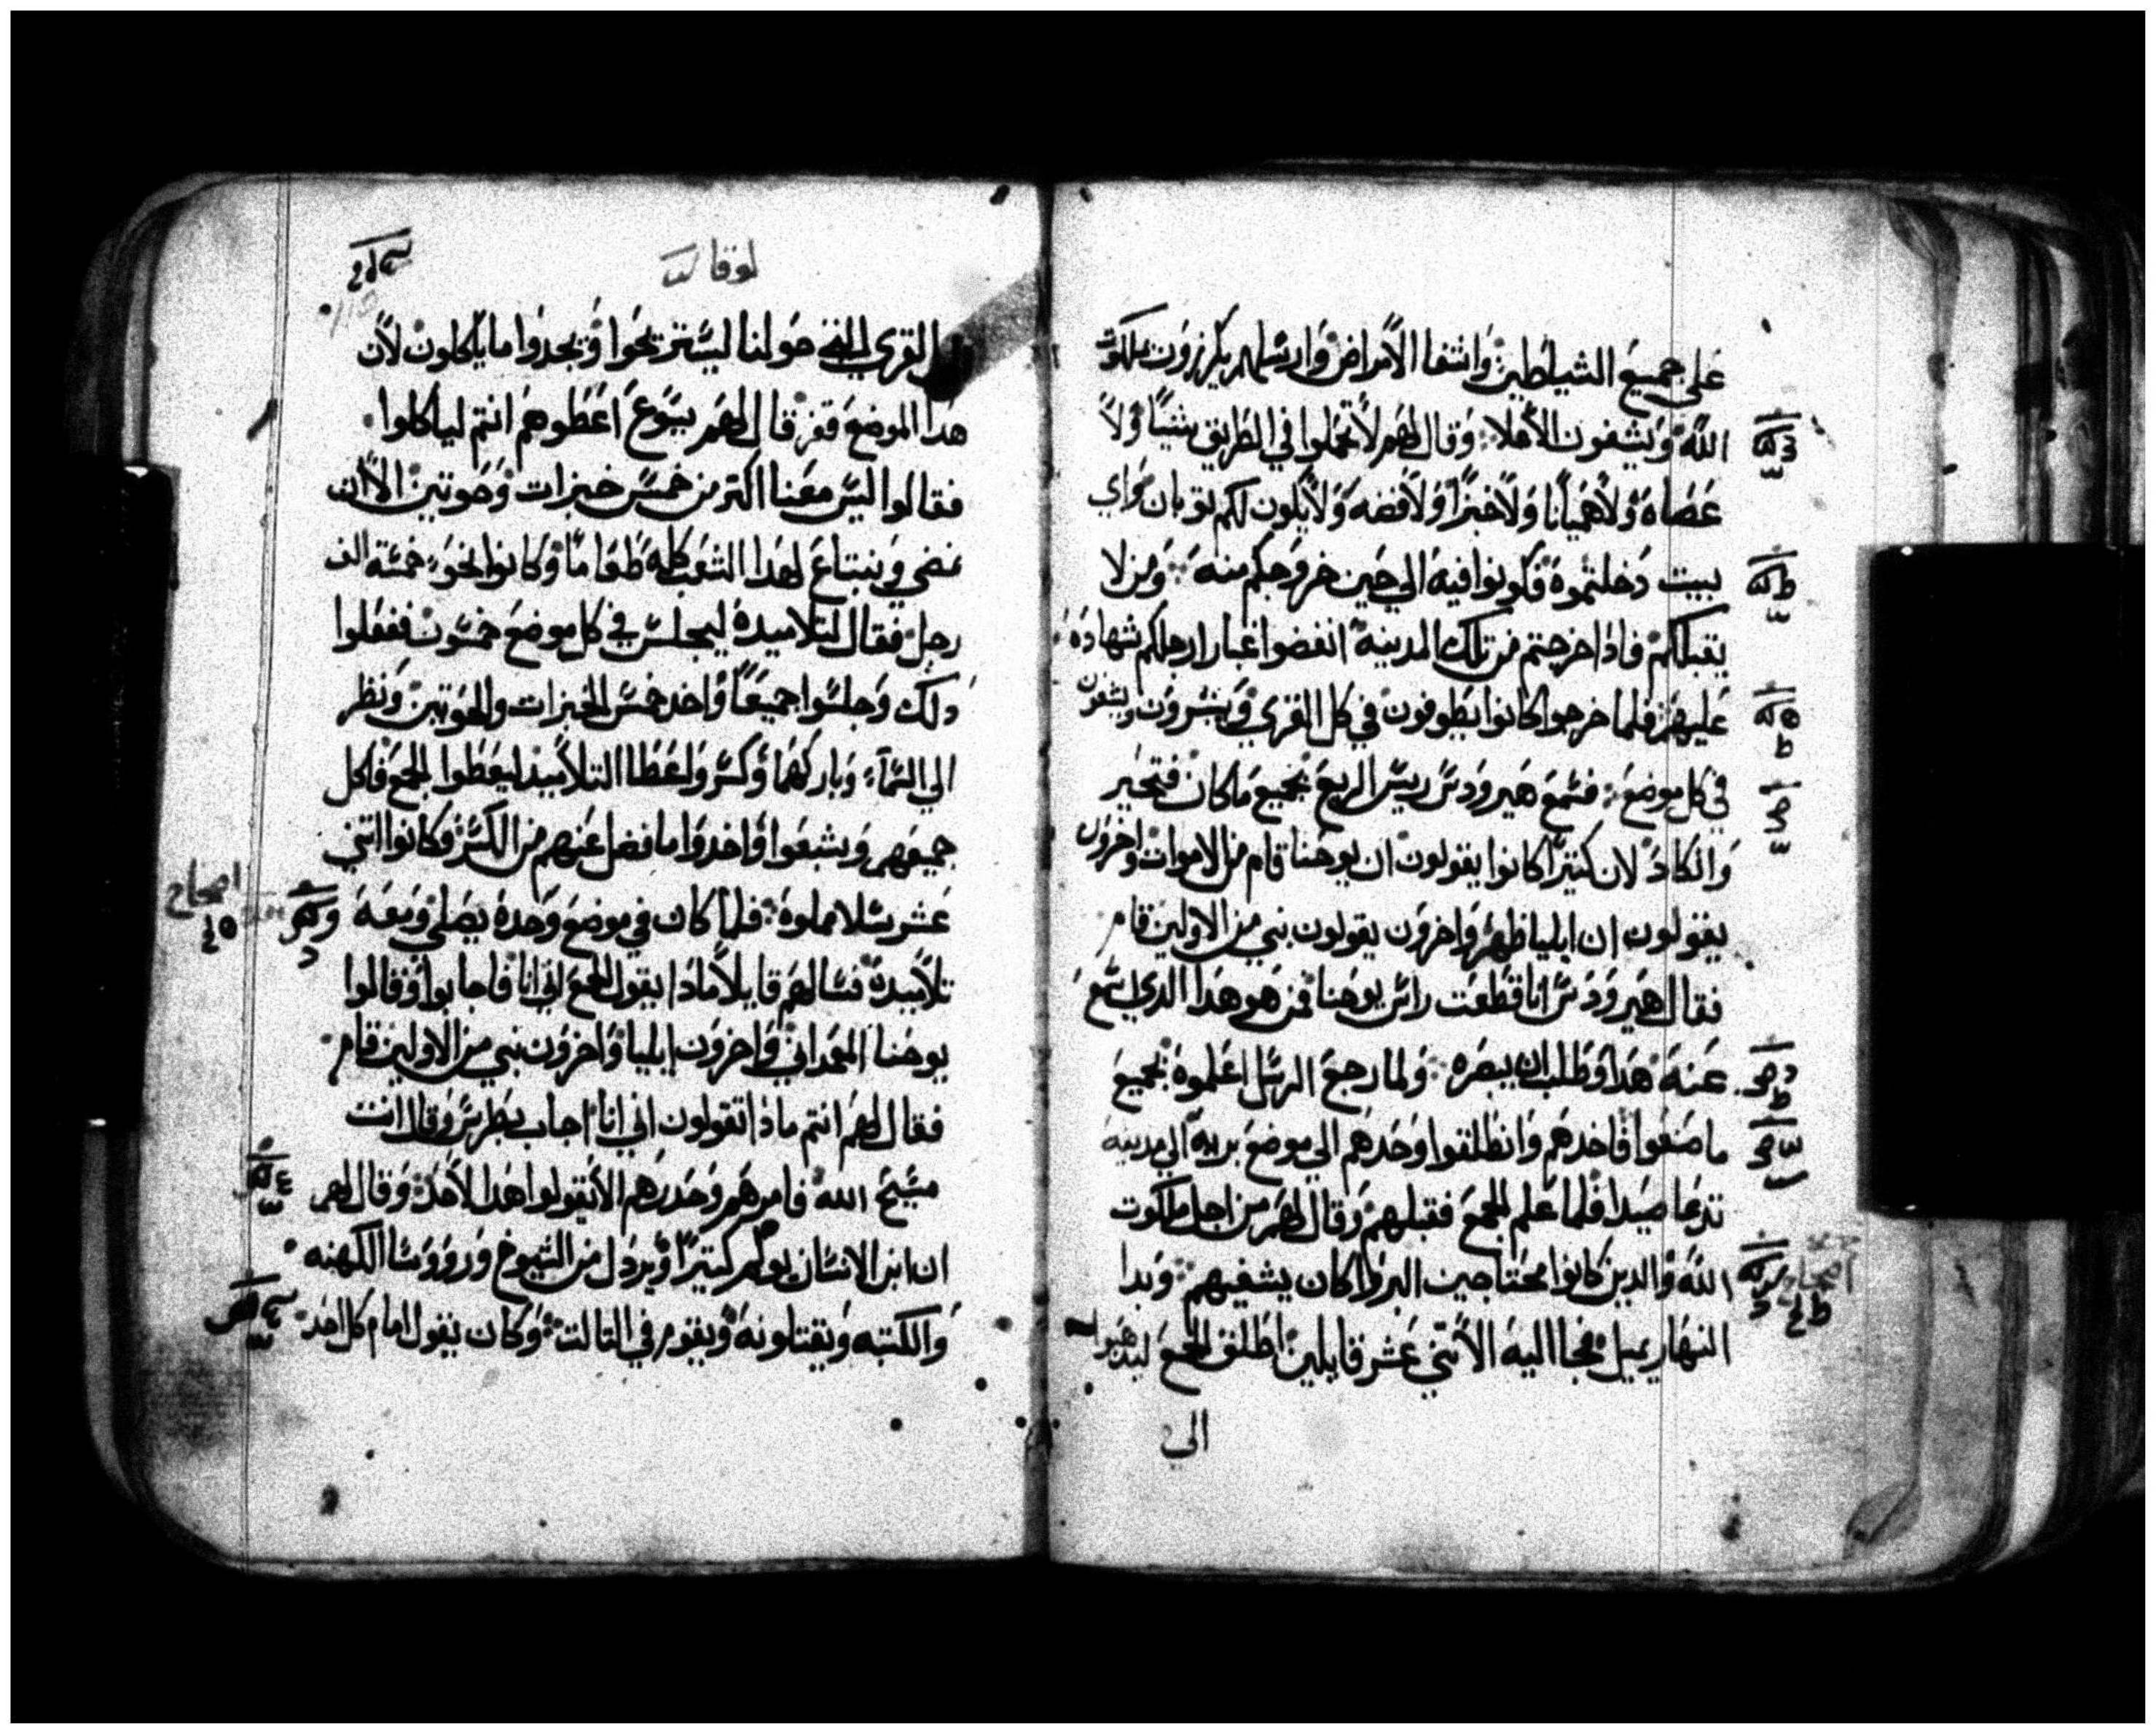 على جميع الشياطين واشفا الامراض وارسلهم يكرزون بملكوت
الله ويشفون الاعلا وقال لهم لا تحملوا في الطريق شيًا ولا
عصاه ولا هميانا ولا خبزًا ولا فضه ولا يكون لكم توبان واي
بيت دخلتموه فكونوا فيه الي حين خروجكم منه ومن لا
يقبلكم فاذا خرجتم من تلك المدينه انفضوا غبار ارجلكم شهاده
عليهم فلما خرجوا كانوا يطوفون في كل القري ويبشرون ويشفون
في كل موضع فسمع هيرودس ريس الربع بجميع ما كان فتحير
وانكاد لان كتيرًا كانوا يقولون ان يوحنا قام من الاموات واخرون
يقولون ان ايليا ظهر واخرون يقولون نبي من الاولين قام
فقال هيرودس انا قطعت راس يوحنا فمن هو هدا الدي سمع
عنه هدا وطلب ان يبصره ولما رجع الرسل اعلموه بجميع
ما صنعوا فاخدهم وانطلقوا وحدهم الي موضع بريه الي مدينه
تدعا صيدا فلما علم الجمع فقبلهم وقال لهم من اجل ملكوت
الله والدين كانوا محتاجين البرا كان يشفيهم وبدا
النهار يميل فجا اليه الاتني عشر قايلين اطلق الجمع ليدهبوا
الي
اصحاح
لوقا
القري التي حولنا ليستريحوا ويجدوا ما ياكلون لان
هدا الموضع قفر قال لهم يسوع اعطوهم انتم لياكلوا
فقالوا ليس معنا اكتر من خمس خبزات وحوتين الا ان
نمضي ونبتاع لهدا الشعب كله طعامًا وكانوا نحو خمسة الف
رجل فقال لتلاميده ليجلس في كل موضع خمسون ففعلوا
دلك وجلسوا جميعًا واخد خمس الخبزات والحوتين ونظر
الي السماء وباركهما وكسر واعطا التلاميد ليعطوا الجمع فاكل
جميعهم وشبعوا واخدوا ما فضل عنهم من الكسر وكانوا اتني
عشر سلا مملوه فلما كان في موضع وحده يصلي ومعه
تلاميده فسالهم قايلا مادا يقول الجمع اني انا فاجابوا وقالوا
يوحنا المعمداني واخرون ايليا واخرون نبي من الاولين قام
فقال لهم انتم مادا تقولون اني انا اجاب بطرس وقال انت
مسيح الله فامرهم وحدرهم الا يقولوا هدا لاحد وقال لهم
ان ابن الانسان يولم كتيرًا ويردل من الشيوخ وروؤسا الكهنه
والكتبه ويقتلونه ويقوم في التالت وكان يقول امام كل احد
اصحاح